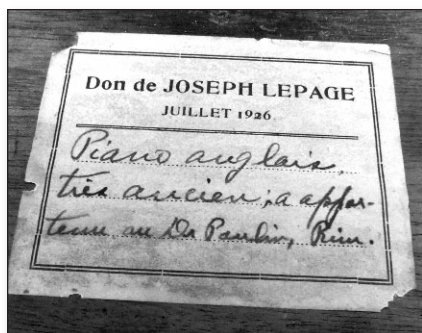 Don de JOSEPH LEPAGE
JUILLET 1926
Piano anglais,
très ancien; a appar-
tenu au Dr Paulin, Rim.